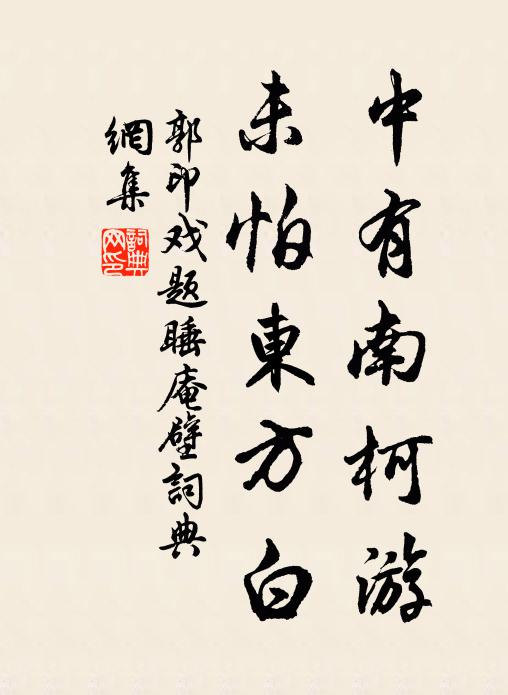 中有南柯游
未怕東方白
郭印戏题睡庵壁詞典
網集
詞典
网印